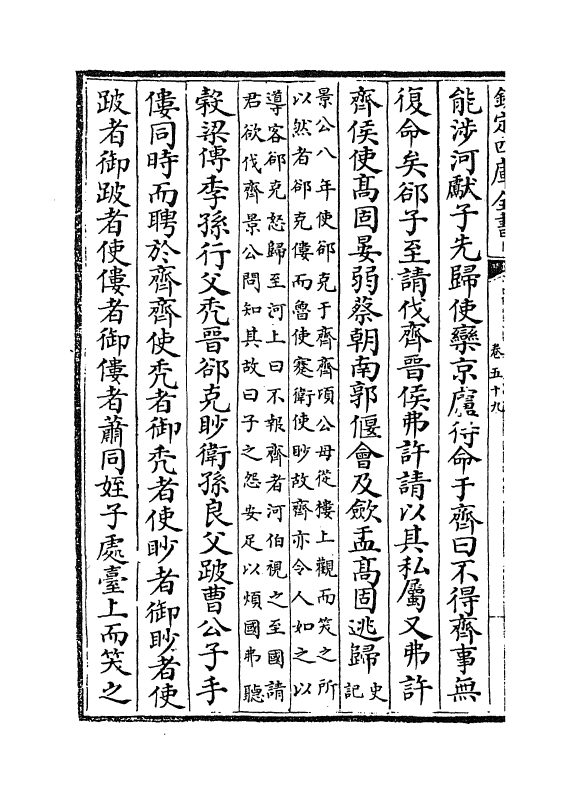 欽定四庫全書
卷五十九
能涉河獻子先歸使欒京廬待命于齊曰不得齊事無
復命矣郤子至請伐齊晉侯弗許請以其私屬又弗許
齊侯使髙固晏弱蔡朝南郭偃會及歛盂髙固逃歸
史記
景公八年使郤克于齊齊頃公母從樓上觀而笑之所
以然者郤克僂而魯使蹇衛使眇故齊亦令人如之以
導客郤克怒歸至河上曰不報齊者河伯視之至國請
君欲伐齊景公問知其故曰子之怨安足以煩國弗聽
榖梁傳季孫行父秃晉郤克眇衛孫良父跛曹公子手
僂同時而聘於齊齊使秃者御秃者使眇者御眇者使
跛者御跛者使僂者御僂者蕭同姪子處臺上而笑之